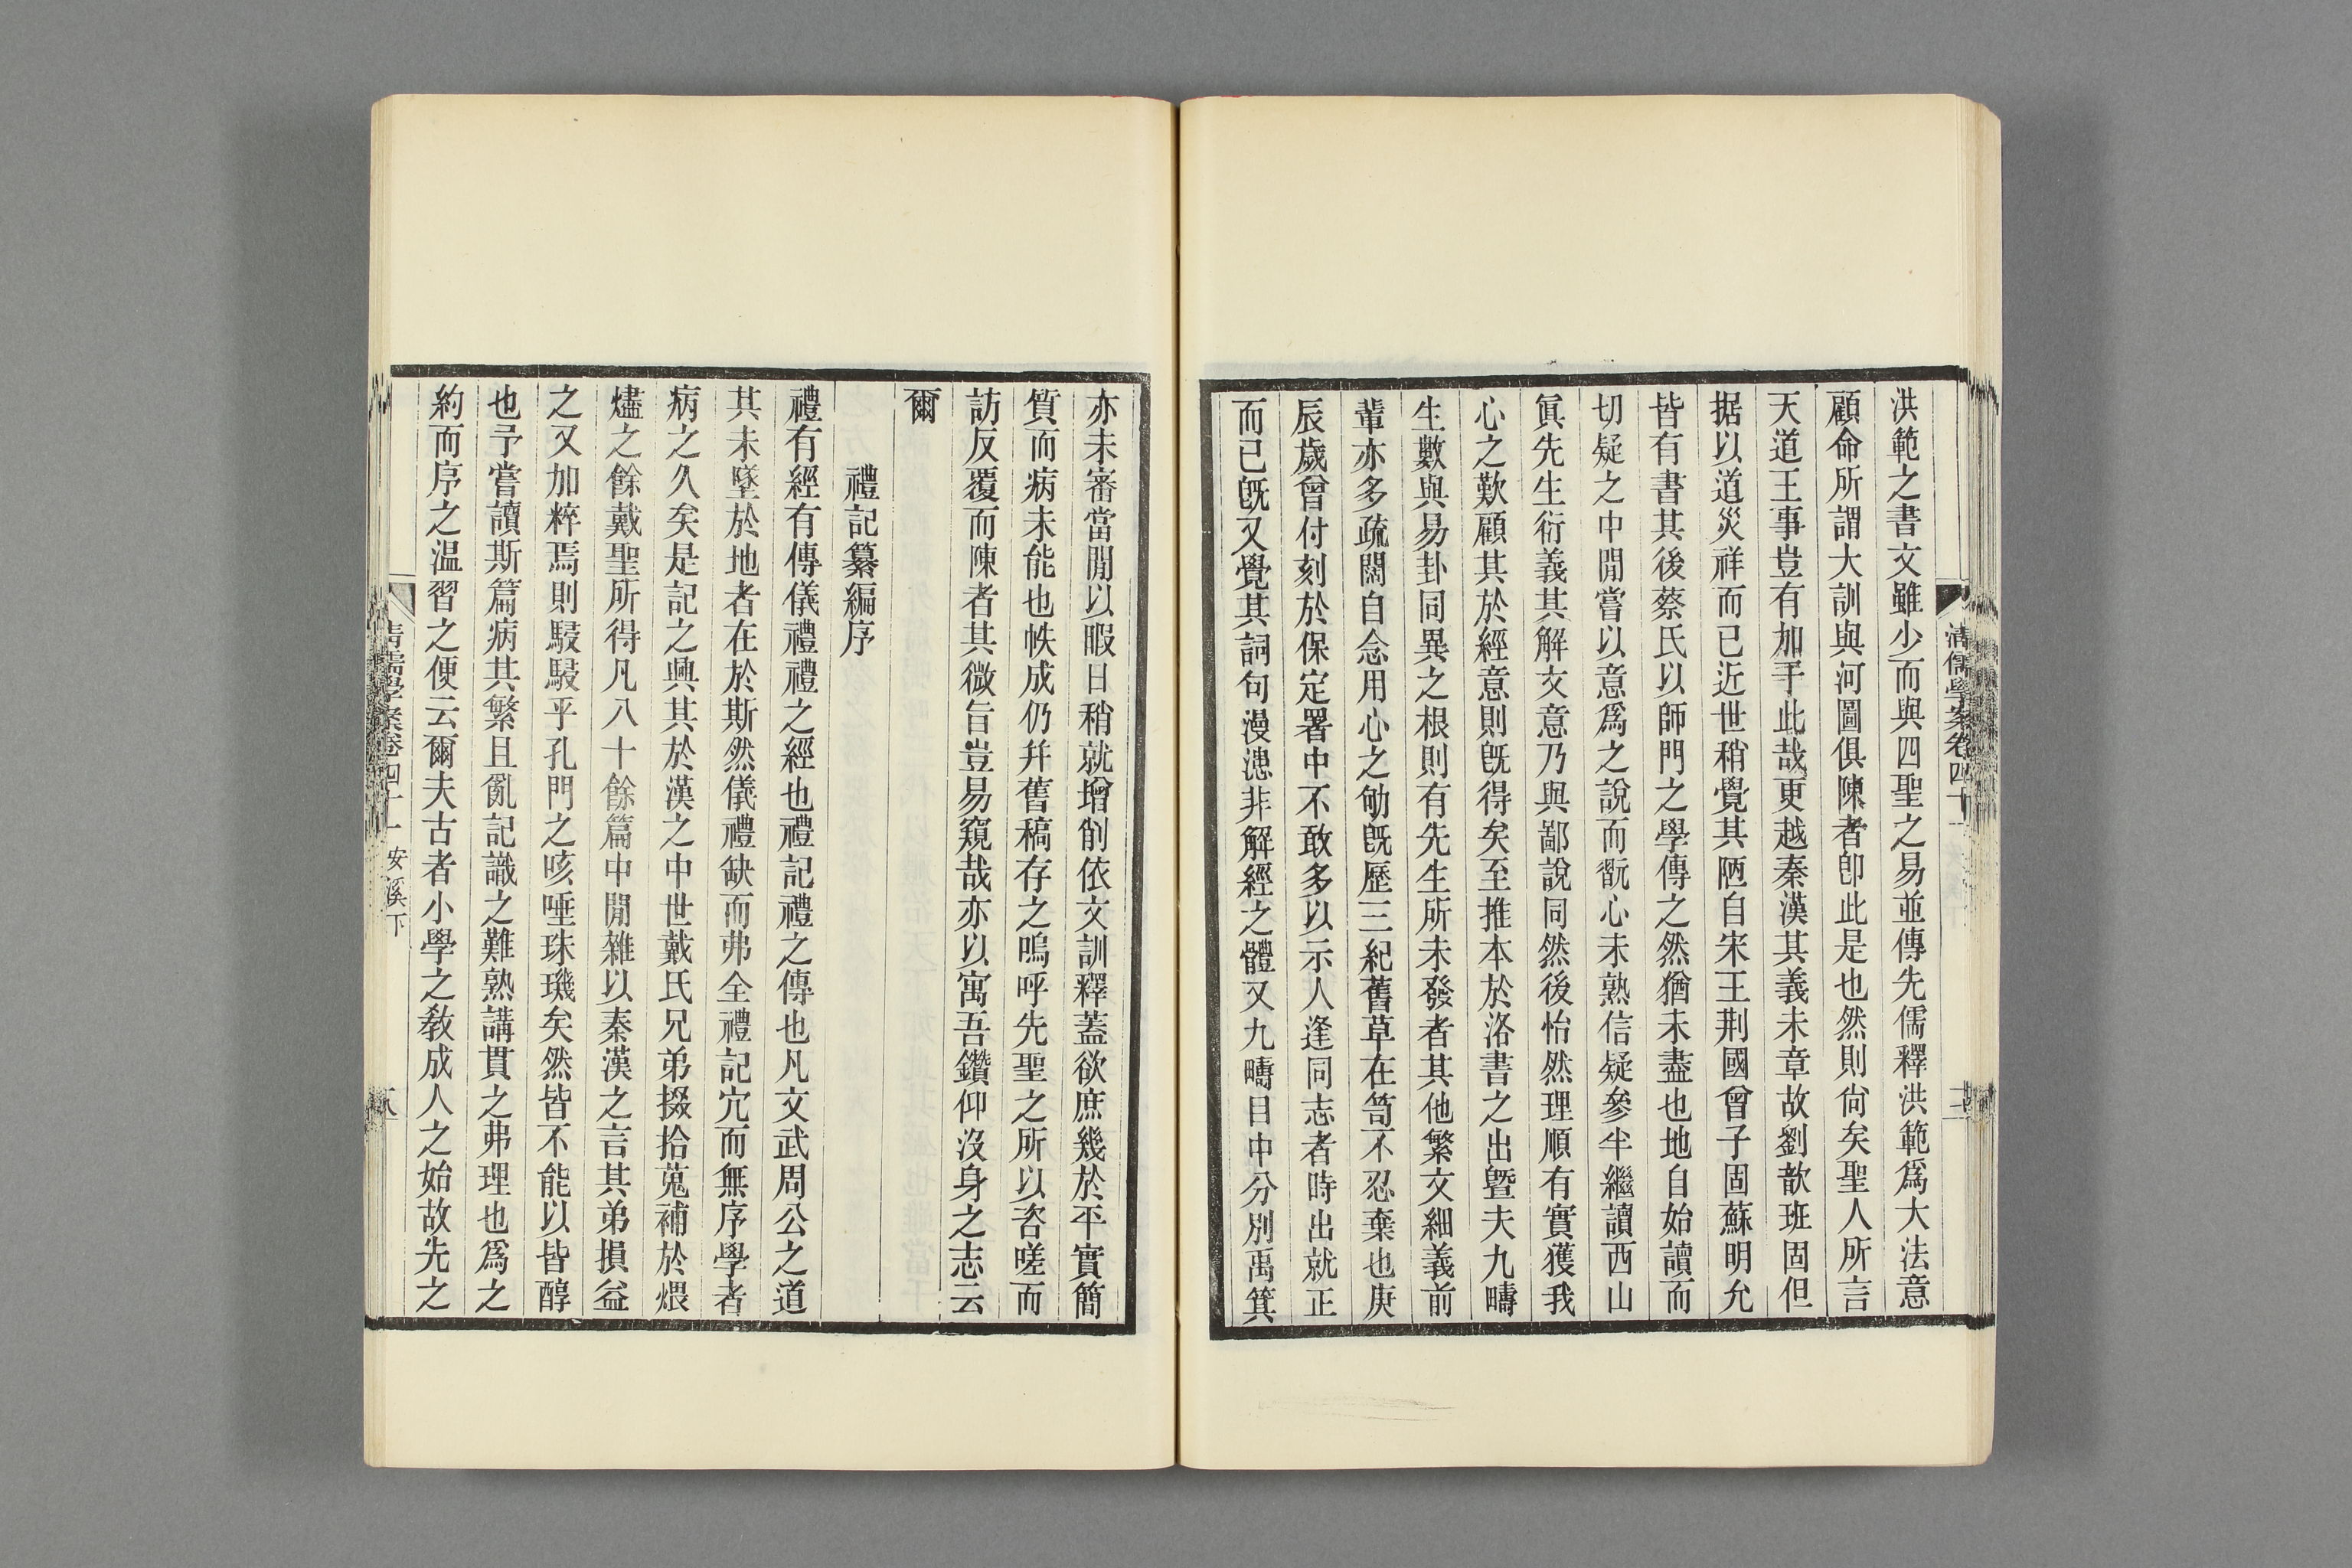 洪範之書文雖少而與四聖之易並傳先儒釋洪範爲大法意
顧命所謂大訓與河圖俱陳者卽此是也然則尙矣聖人所言
天道王事豈有加乎此哉更越秦漢其義未章故劉歆班固但
据以道災祥而已近世稍覺其陋自宋王荆國曾子固蘇明允
皆有書其後蔡氏以師門之學傳之然猶未盡也地自始讀而
切疑之中閒嘗以意爲之說而翫心未熟信疑參半繼讀西山
眞先生衍義其解文意乃與鄙說同然後怡然理順有實獲我
心之歎顧其於經意則旣得矣至推本於洛書之出曁夫九疇
生數與易卦同異之根則有先生所未發者其他繁文細義前
輩亦多疏闊自念用心之劬旣歷三紀舊草在笥不忍棄也庚
辰歲曾付刻於保定署中不敢多以示人逢同志者時出就正
而已旣又覺其詞句漫漶非解經之體又九疇目中分別禹箕
清儒學案卷四十一
亦未審當閒以暇日稍就增削依文訓釋蓋欲庶幾於平實簡
質而病未能也帙成仍幷舊稿存之嗚呼先聖之所以咨嗟而
訪反覆而陳者其微旨豈易窺哉亦以寓吾鑽仰沒身之志云
爾
禮記纂編序
禮有經有傳儀禮禮之經也禮記禮之傳也凡文武周公之道
其未墜於地者在於斯然儀禮缺而弗全禮記宂而無序學者
病之久矣是記之興其於漢之中世戴氏兄弟掇拾蒐補於煨
燼之餘戴聖所得凡八十餘篇中閒雜以秦漢之言其弟損益
之又加粹焉則駸駸乎孔門之咳唾珠璣矣然皆不能以皆醇
也予嘗讀斯篇病其繁且亂記識之難熟講貫之弗理也爲之
約而序之温習之便云爾夫古者小學之敎成人之始故先之
清儒學案卷四十一 安溪下 八